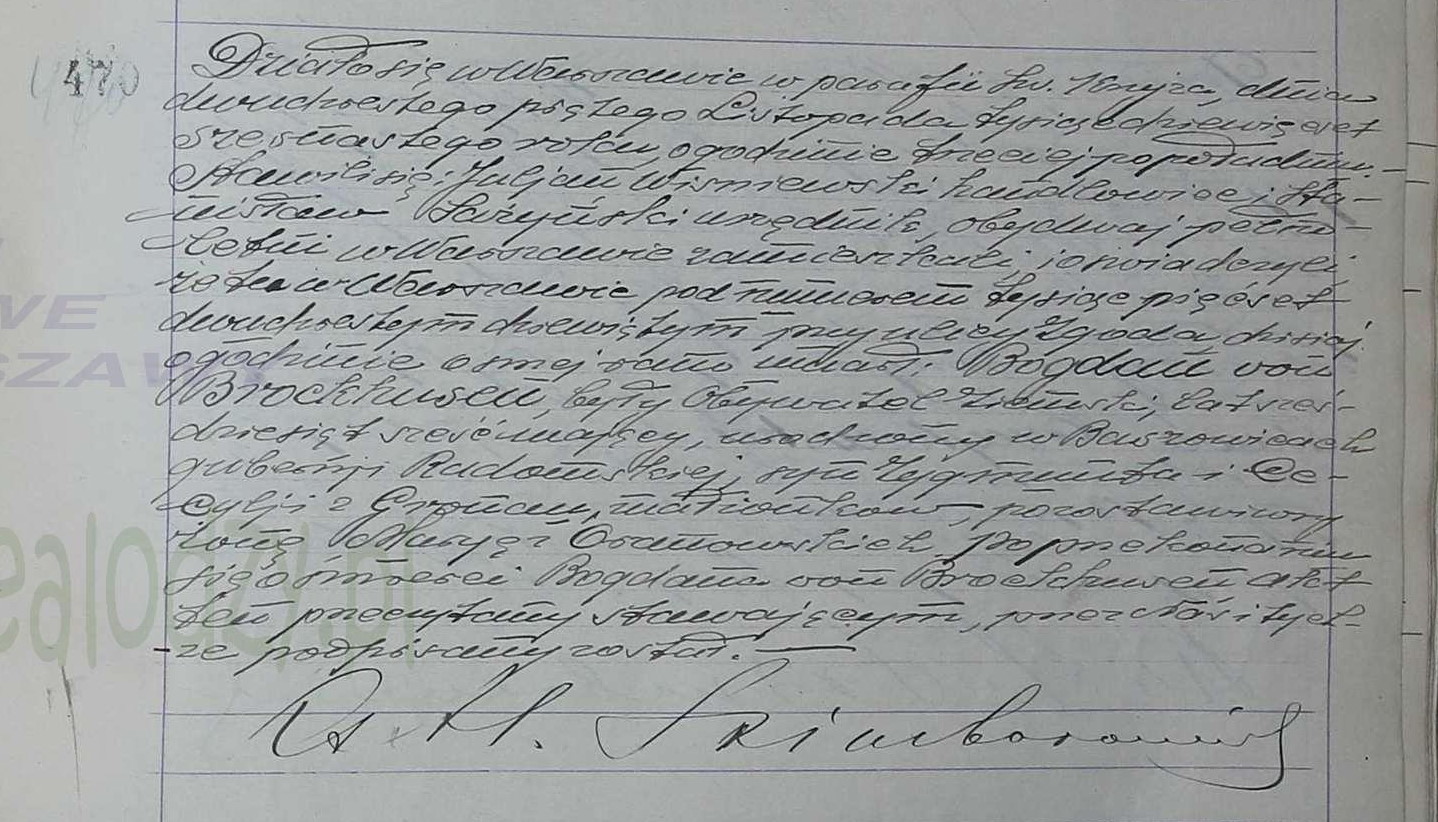 470
Działo się w Warszawie w parafii Św. Krzyża, dnia
dwudziestego piątego Listopada tysiąc dziewięćset
szesnastego roku, o godzinie trzeciej popołudniu.
Stawili się: Juljan Wiśniewski handlowiec i Sta-
nisław urzędnik, obydwaj pełno-
letni w Warszawie zamieszkali, i oświadczyli,
że tu w Warszawie pod numerem tysiąc pięćset
dwudziestym dziewiątym przy ulicy Zgoda, dzisiaj
o godzinie ósmej rano umarł: Bogdan von
Brockhusen, były Obywatel Ziemski, lat sześ-
dziesiąt sześć mający, urodzony w
gubernji Radomskiej, syn Zygmunta i Ce-
cylji z małżonków, pozostawiwszy
żonę Maryę z Po przekonaniu
się o śmierci Bogdana von Brockhusen akt
ten przeczytany stawającym, przez Nas i tych-
że podpisany został.
WE
SZAWY
ealodzy.pl